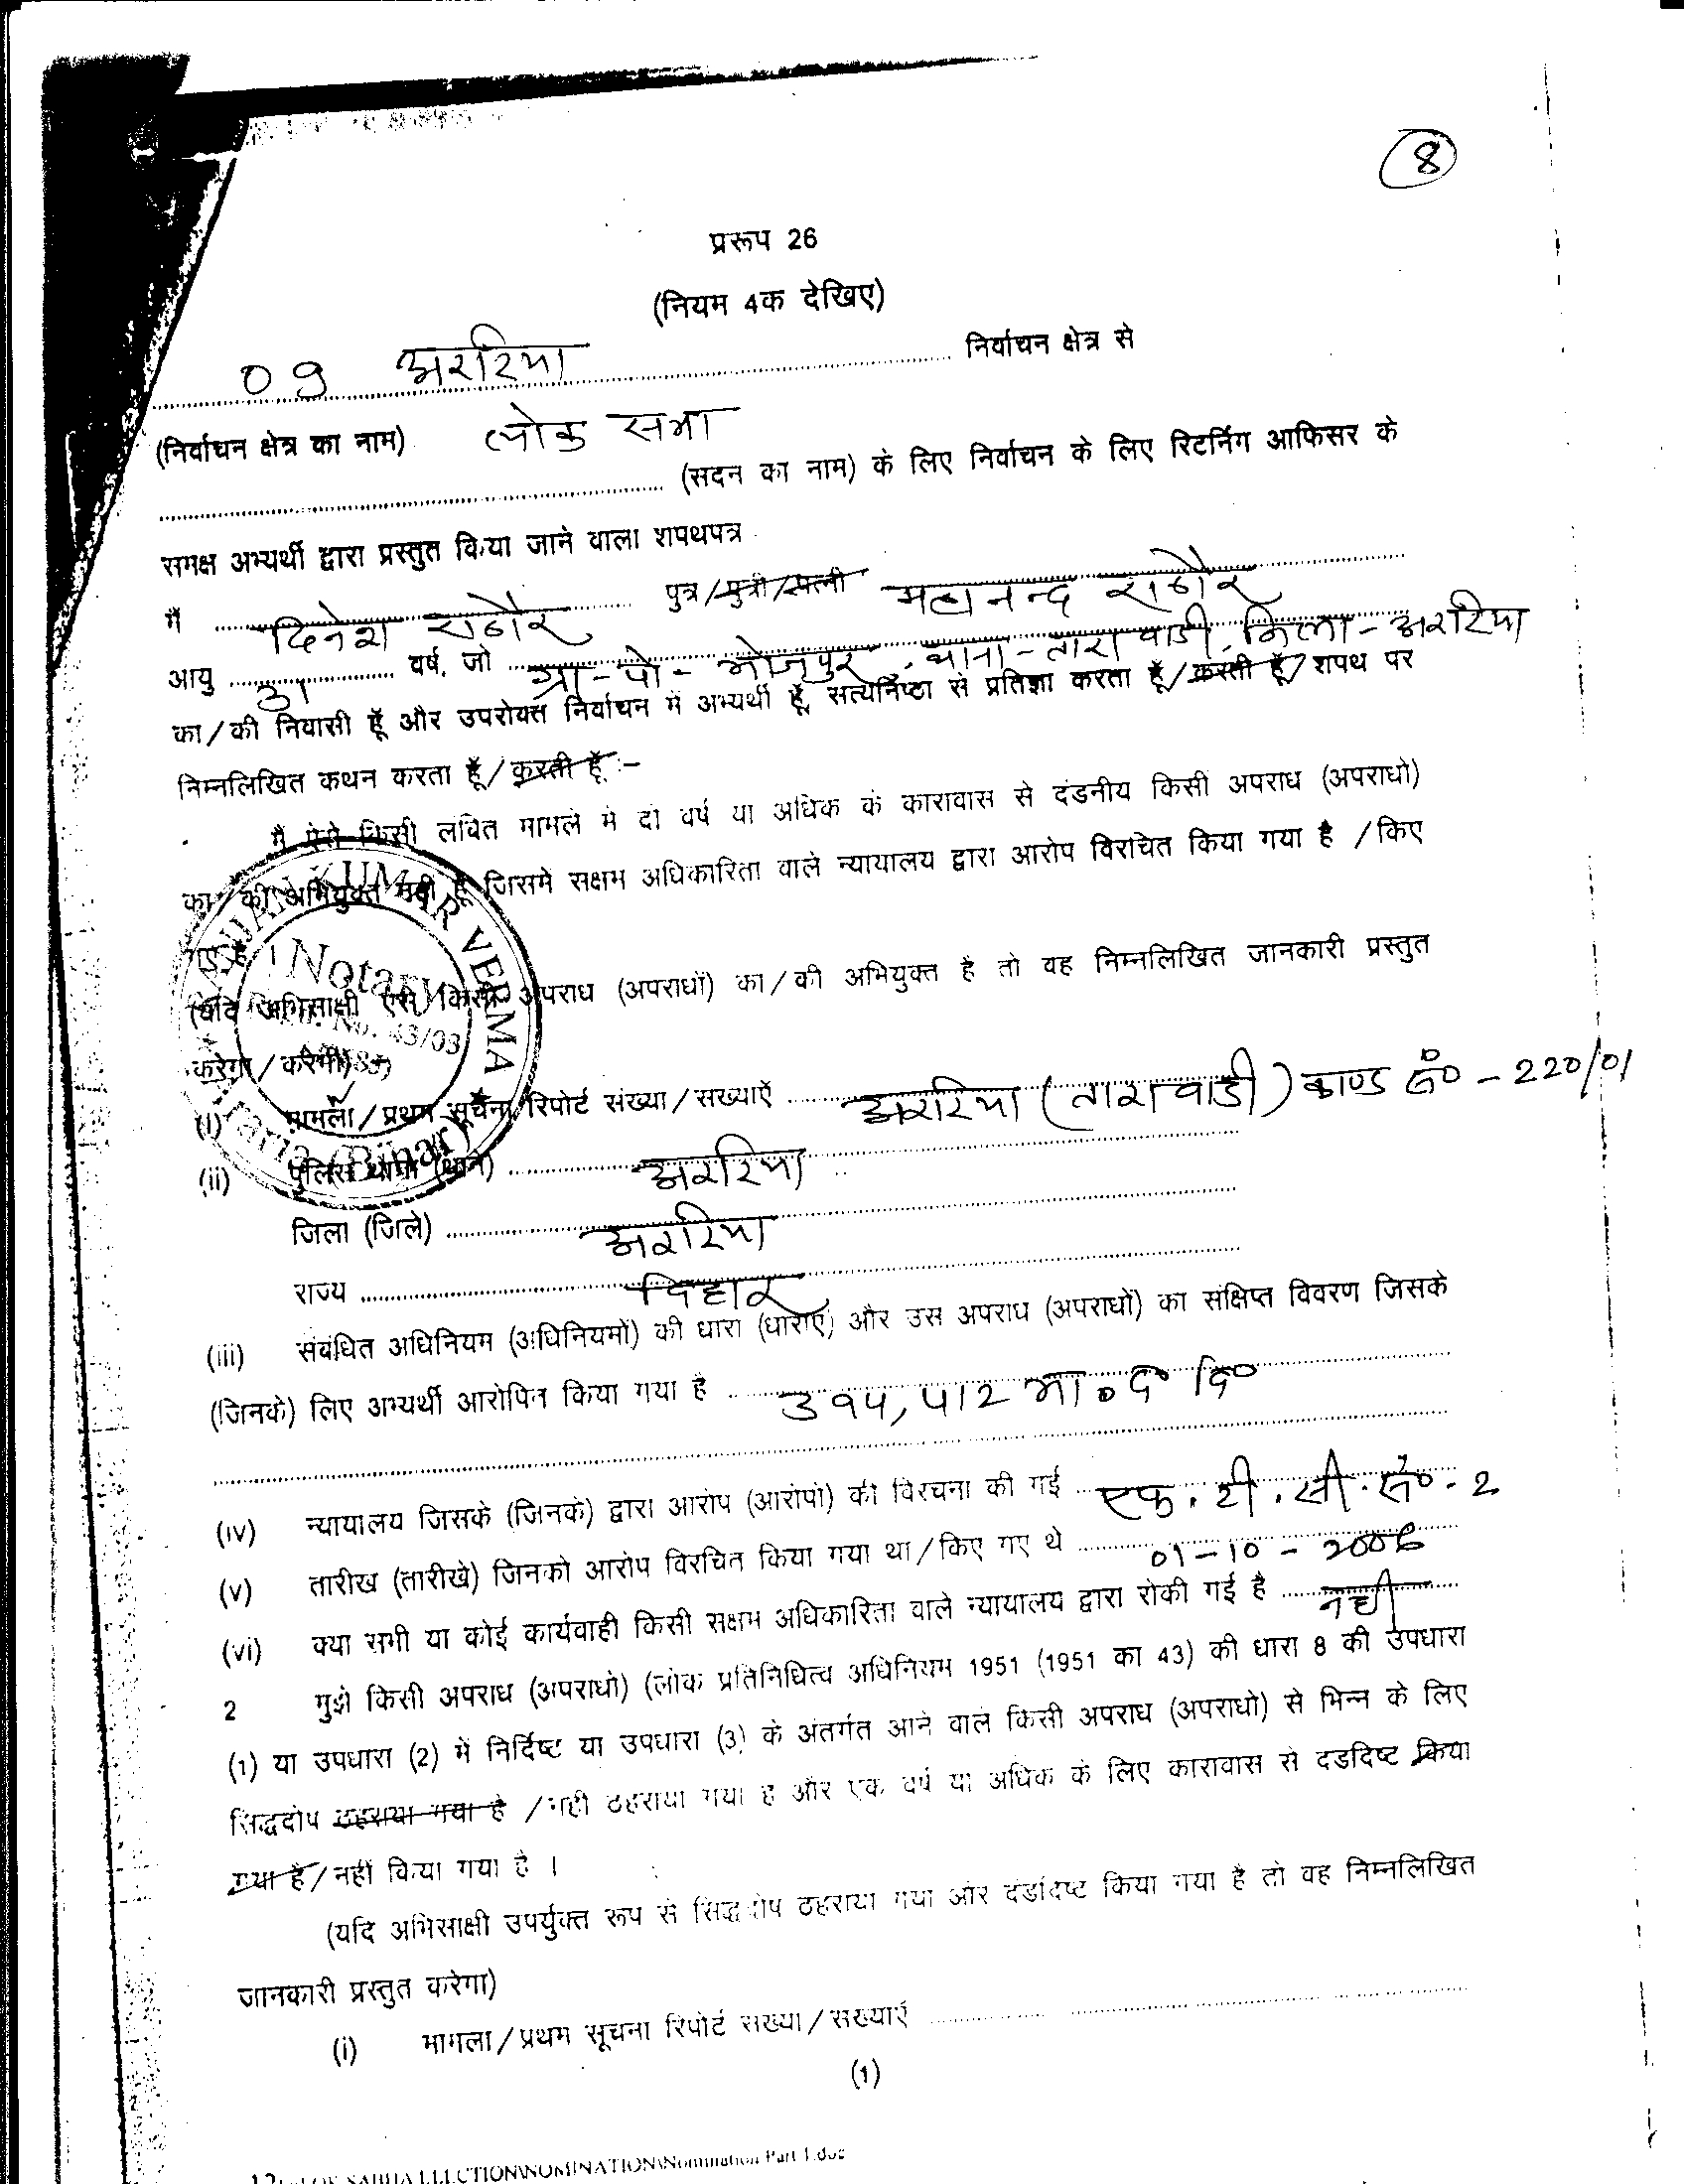 8
प्ररूप 26
(नियम 4क देखिए)
09 अररिया निर्वाचन क्षेत्र से
(निर्वाचन क्षेत्र का नाम) लोक सभा
(सदन का नाम) के लिए निर्वाचन के लिए रिटर्निंग आफिसर के
समक्ष अभ्यर्थी द्वारा प्रस्तुत किया जाने वाला शपथपत्र
मैं दिनेश राठौर पुत्र/पुत्री/पत्नी महानन्द राठौर
आयु 31 वर्ष, जो ग्रा-पो-भोजपुर, थाना-तारावाडी, जिला-अररिया
का/की निवासी हूँ और उपरोक्त निर्वाचन में अभ्यर्थी हूँ, सत्यनिष्ठा से प्रतिज्ञा करता हूँ/करती हूँ/शपथ पर
निम्नलिखित कथन करता हूँ/करती हूँ :-
मैं ऐसे किसी लंबित मामले में दो वर्ष या अधिक के कारावास से दंडनीय किसी अपराध (अपराधों)
का/की अभियुक्त नहीं हूँ जिसमें सक्षम अधिकारिता वाले न्यायालय द्वारा आरोप विरचित किया गया है /किए
गए हैं ।
(यदि अभिसाक्षी ऐसे किसी अपराध (अपराधों) का/की अभियुक्त है तो वह निम्नलिखित जानकारी प्रस्तुत
करेगा/करेगी) :-
KUMAR VERMA
Notary
No. 43/03
(Bihar)
(i) मामला/प्रथम सूचना रिपोर्ट संख्या/संख्याएँ अररिया (तारावाडी) काण्ड सं० - 220/01
(ii) पुलिस थाना (थाने) अररिया
जिला (जिले) अररिया
राज्य बिहार
(iii) संबंधित अधिनियम (अधिनियमों) की धारा (धाराएं) और उस अपराध (अपराधों) का संक्षिप्त विवरण जिसके
(जिनके) लिए अभ्यर्थी आरोपित किया गया है 395, 412 भा०द०वि०
(iv) न्यायालय जिसके (जिनके) द्वारा आरोप (आरोपों) की विरचना की गई एफ.टी.सी.सं०-2
(v) तारीख (तारीखें) जिनको आरोप विरचित किया गया था/किए गए थे 01-10-2006
(vi) क्या सभी या कोई कार्यवाही किसी सक्षम अधिकारिता वाले न्यायालय द्वारा रोकी गई है नहीं
2 मुझे किसी अपराध (अपराधों) (लोक प्रतिनिधित्व अधिनियम 1951 (1951 का 43) की धारा 8 की उपधारा
(1) या उपधारा (2) में निर्दिष्ट या उपधारा (3) के अंतर्गत आने वाले किसी अपराध (अपराधों) से भिन्न के लिए
सिद्धदोष ठहराया गया है /नहीं ठहराया गया है और एक वर्ष या अधिक के लिए कारावास से दंडदिष्ट किया
गया है/नहीं किया गया है ।
(यदि अभिसाक्षी उपर्युक्त रूप से सिद्धदोष ठहराया गया और दंडादिष्ट किया गया है तो वह निम्नलिखित
जानकारी प्रस्तुत करेगा)
(i) मामला/प्रथम सूचना रिपोर्ट संख्या/संख्याएँ
(1)
SABHA ELECTION\NOMINATION\Nomination Part 1.doc